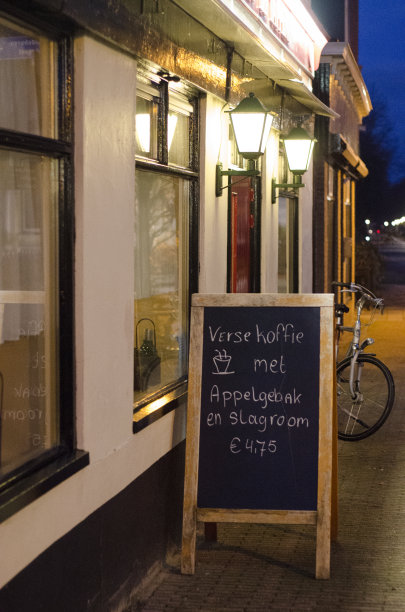 Verse koffie
met
Appelgebak
en slagroom
€4,75